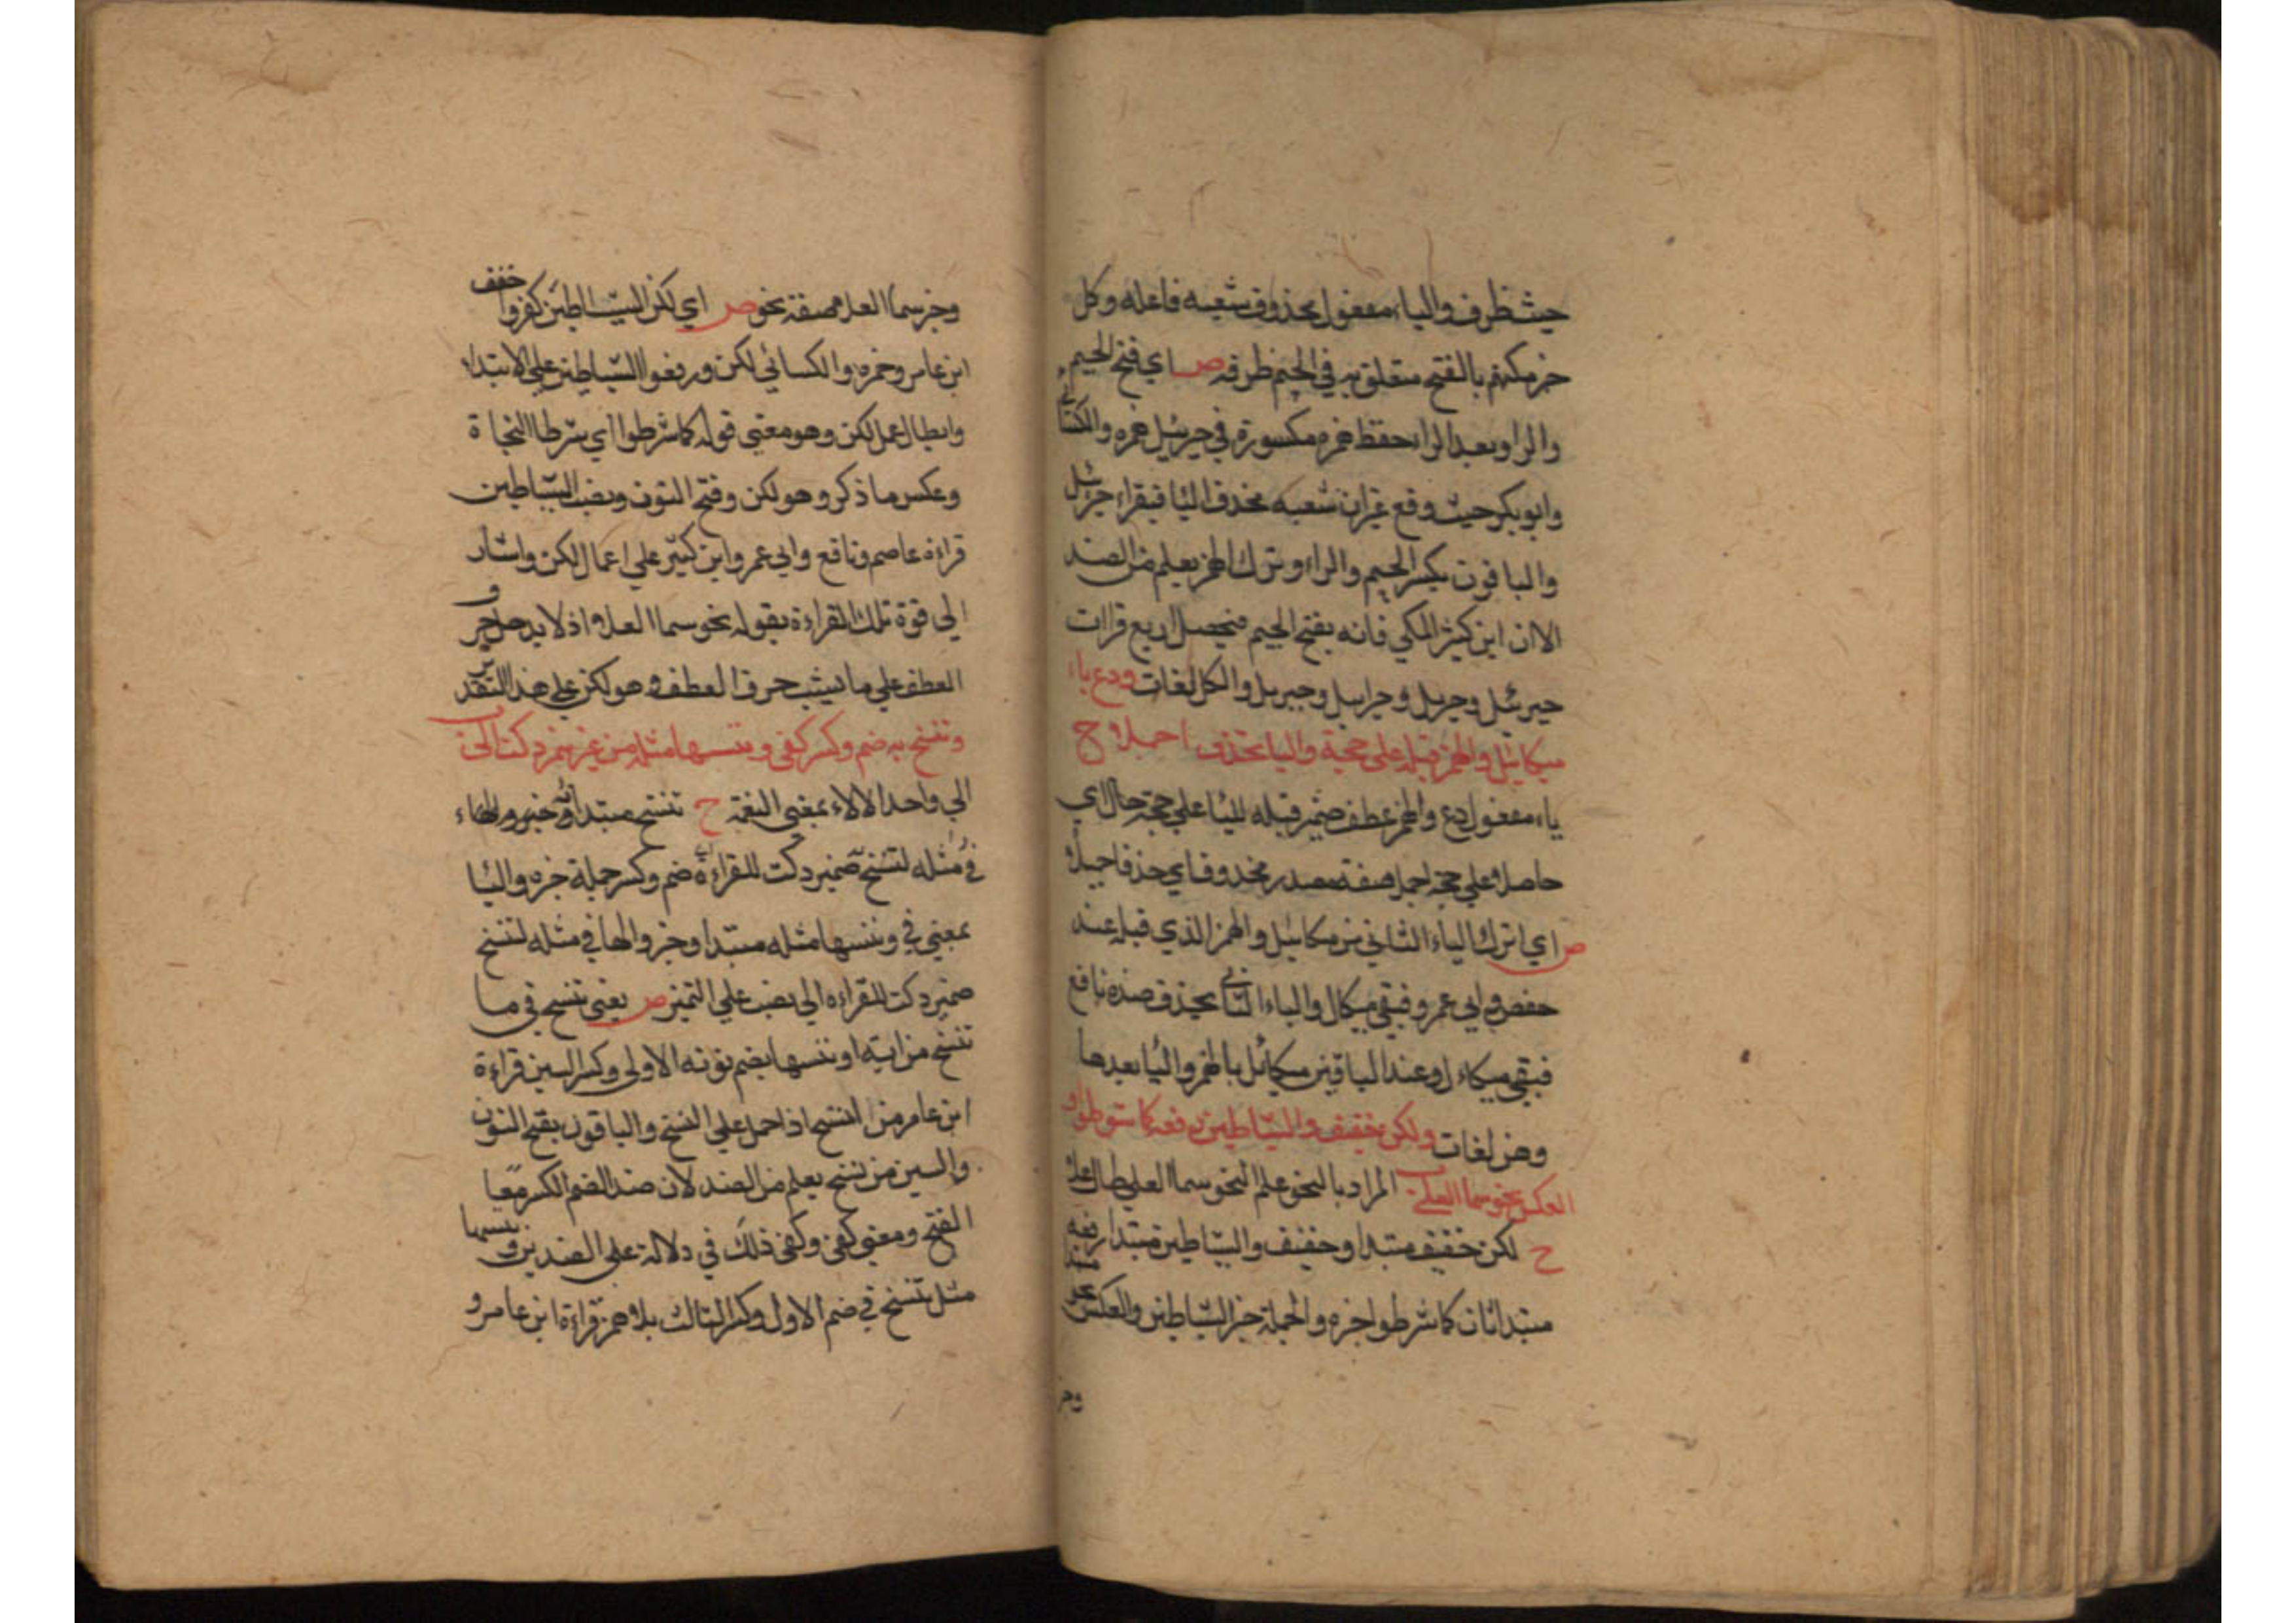 حيث ظرف والياء مفعول يحذف شعبه فاعله وكل
خبر مكيهم بالفتح متعلق به في الجيم ظرفه ص اي فتح الجيم
والرا وبعد الرا حفظ همزه مكسورة في جبرئيل همزه والكسائي
وابو بكر حيث وقع غير ان شعبه يحذف اليا فيقراء جبرئل
والباقون بكسر الجيم والراء وترك الهمز يعلم من الضد
الا ان ابن كثير المكي فانه بفتح الجيم فيحصل اربع قرات
جبرئيل وجبريل وجبرئل وجبريل والكل لغات ودع ياء
ميكائيل والهمز قبله على حجة واليا يحذف اجملا ح
ياء مفعول دع والهمز عطف ضمير قبله لليا على حجة حال اي
حاصلا على حجة اجمل صفة مصدر محذوف اي حذفا جميلا
ص اي اترك الياء الثاني من ميكائيل والهمز الذي قبله عند
حفص وابي عمرو فبقي ميكال والياء الثاني يحذف ضده نافع
فبقي ميكاءل وعند الباقين ميكائيل بالهمز واليا بعدها
وهن لغات ولكن خفيف والشياطين رفعه كما شرطوا و
العكس نحو سما العلى المراد بالنحو علم النحو سما العلى طال علا
ح لكن خفيف مبتدا وخفيف والشياطين مبتدا رفعه
مبتدا ثان كما شرطوا خبره والجملة خبر الشياطين والعكس
وخبر
وخبر سما العلا صفة نحو ص اي لكن الشياطين كفروا خفف
ابن عامر وحمزه والكسائي لكن ورفعوا الشياطين على الابتداء
وابطال عمل لكن وهو معنى قوله كما شرطوا اي شرط النحاة
وعكس ما ذكر وهو لكن وفتح النون ونصب الشياطين
قراءة عاصم ونافع وابي عمرو ابن كثير على اعمال لكن واشار
الى قوة تلك القراءة بقوله نحو سما العلا اذ لا يدخل حرف
العطف على ما يشبه حرف العطف وهو لكن على هذا التقدير
وننسخ به ضم وكسر كفى وننسها مثله من غير همز ذكت الى
الى واحد الالاء بمعنى النعمة ح ننسخ مبتدا خبره والهاء
في مثله لننسخ ضمير ذكت للقراءة ضم وكسر جملة خبره واليا
بمعنى في وننسها مثله مبتدا وخبر والها في مثله لننسخ
ضمير ذكت للقراءه الى نصب على التمييز ص يعني ننسخ في ما
ننسخ من اية او ننسها بضم نونه الاولى وكسر السين قراءة
ابن عامر من انسخ اذا حمل على النسخ والباقون بفتح النون
والسين من ننسخ يعلم من الضد لان ضد الضم والكسر معا
الفتح ومعنى كفى وكفى ذلك في دلالة على الضدين وننسها
مثل ننسخ في ضم الاول وكسر الثالث بلا همز قراءة ابن عامر و